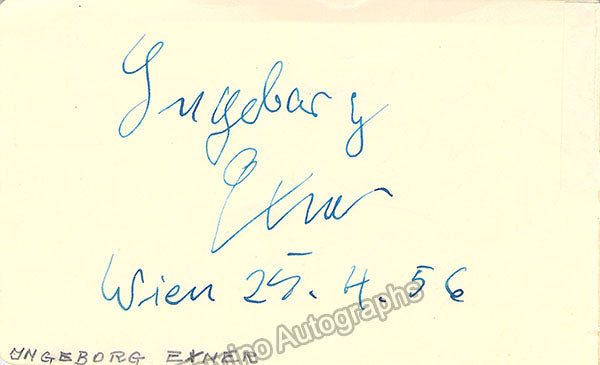 Ingeborg
Exner
Wien 25. 4. 56
INGEBORG EXNER
Tamino Autographs